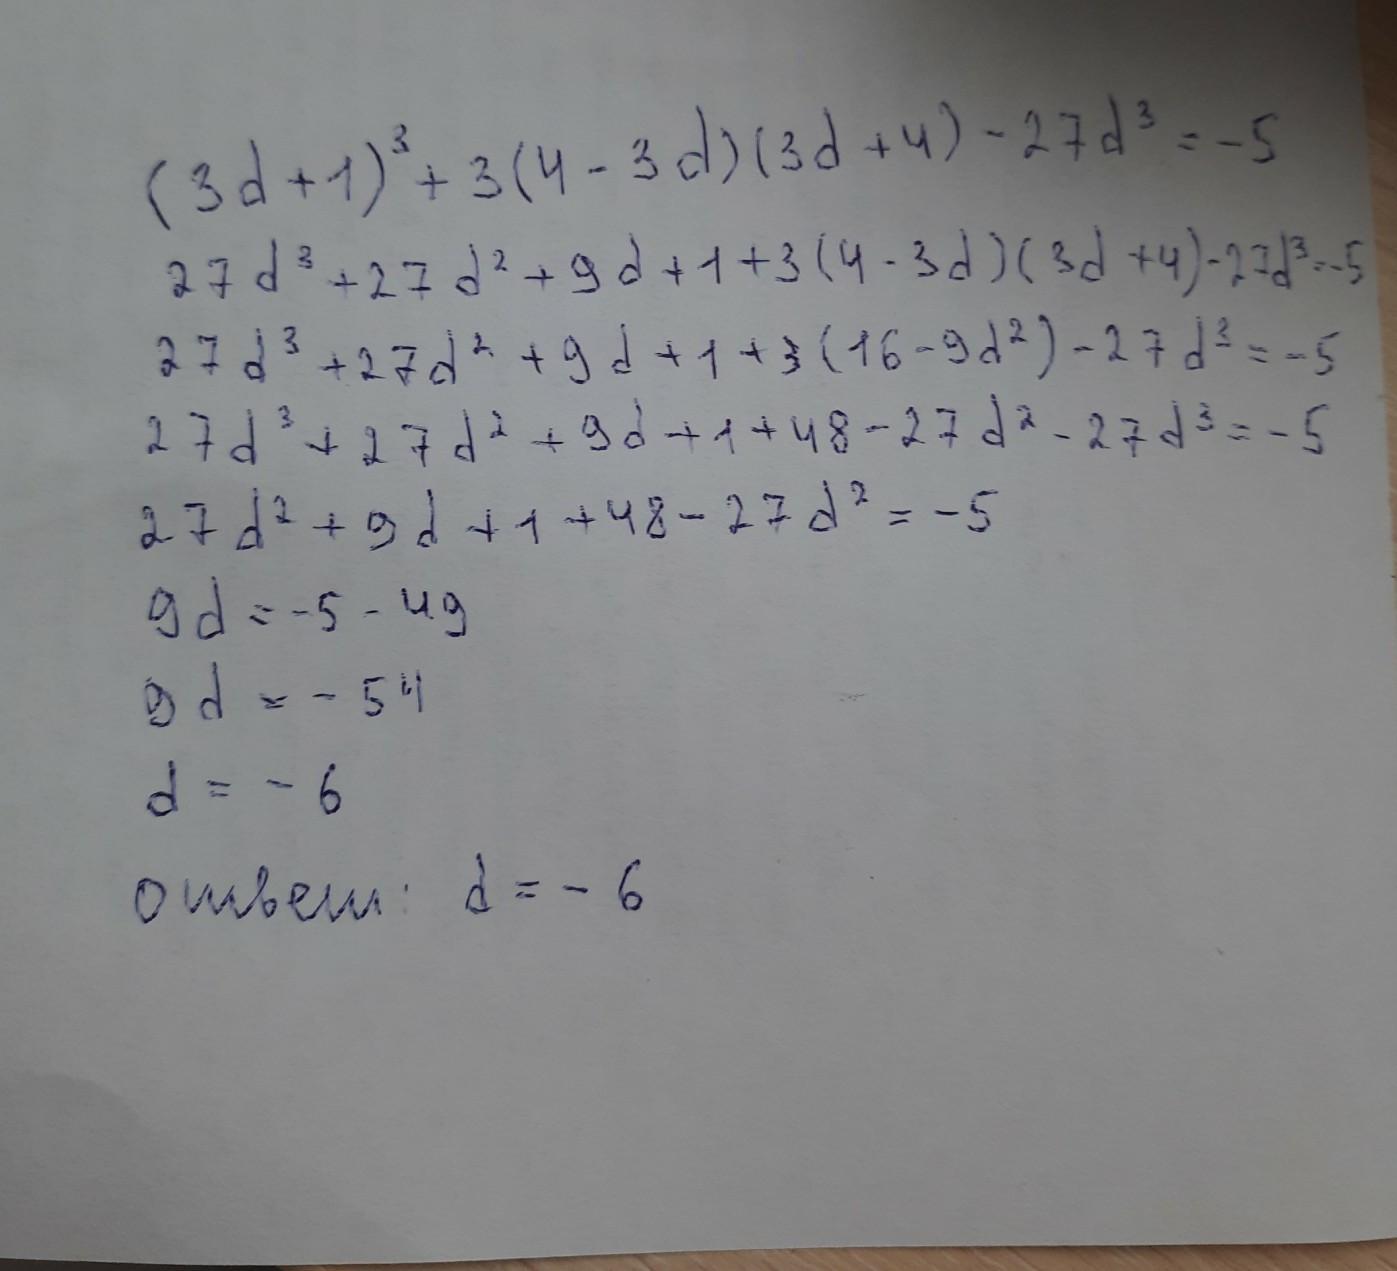 (3d+1)³+3(4-3d)(3d+4)-27d³=-5
27d³+27d²+9d+1+3(4-3d)(3d+4)-27d³=-5
27d³+27d²+9d+1+3(16-9d²)-27d³=-5
27d³+27d²+9d+1+48-27d²-27d³=-5
27d²+9d+1+48-27d²=-5
9d=-5-49
9d=-54
d=-6
ответ: d=-6